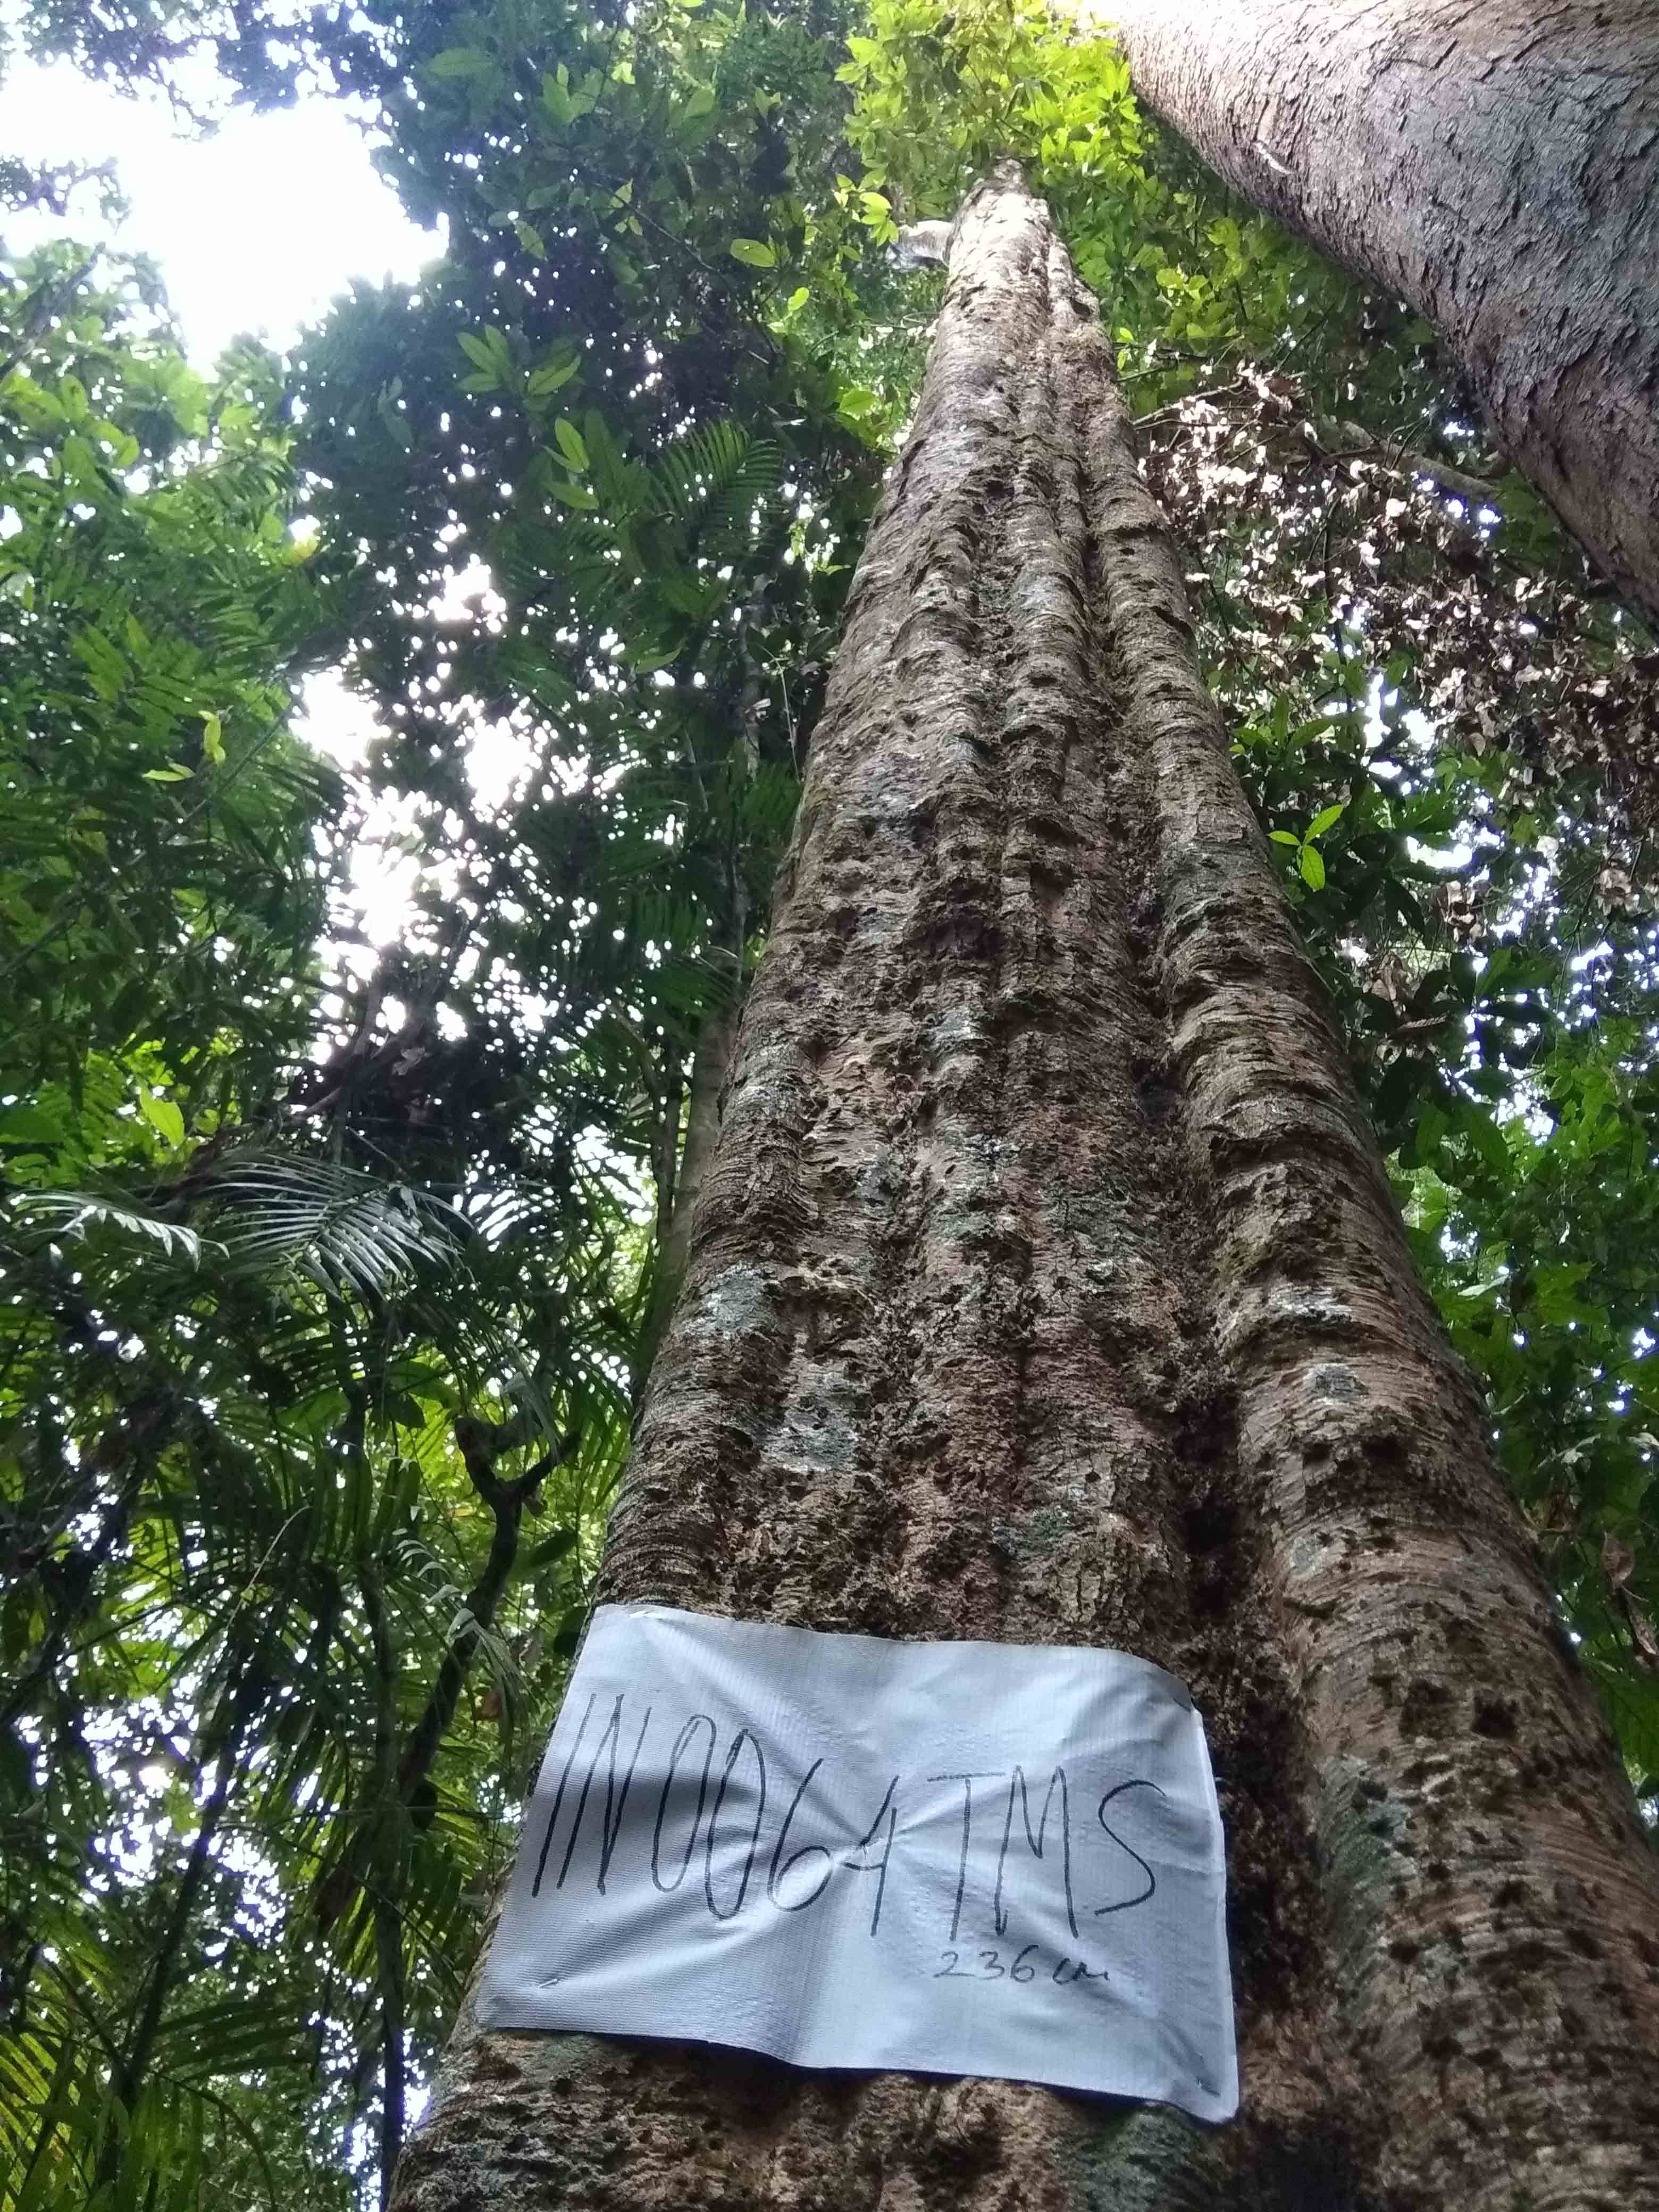 IN0064TMS
236 cm